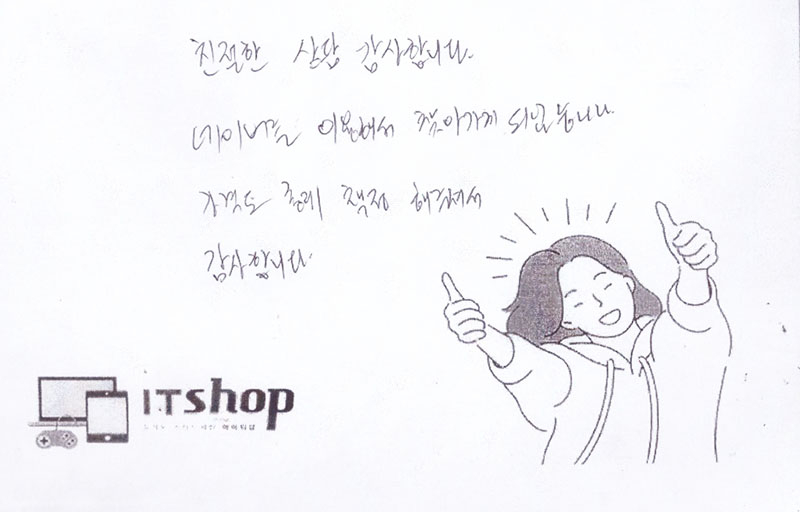 친절한 상담 감사합니다.
네이버를 이용해서 찾아가게 되었습니다.
가격도 좋게 책정 해주셔서
감사합니다.
ITshop
아이티샵